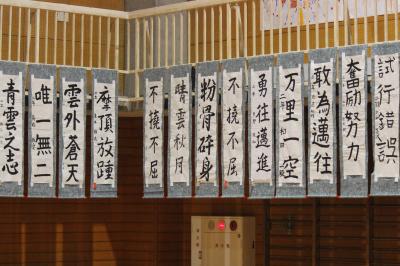 試行錯誤
奮励努力
敢為邁往
万里一空
勇往邁進
不撓不屈
粉骨砕身
晴雲秋月
不撓不屈
摩頂放踵
雲外蒼天
唯一無二
青雲之志